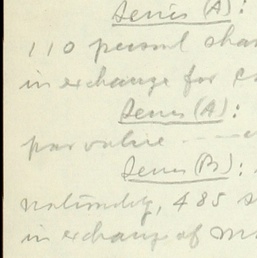 Series (A):
110 personal shar
in exchange for
Series (A):
par value
Series (B):
nationality, 485 s
in exchange of